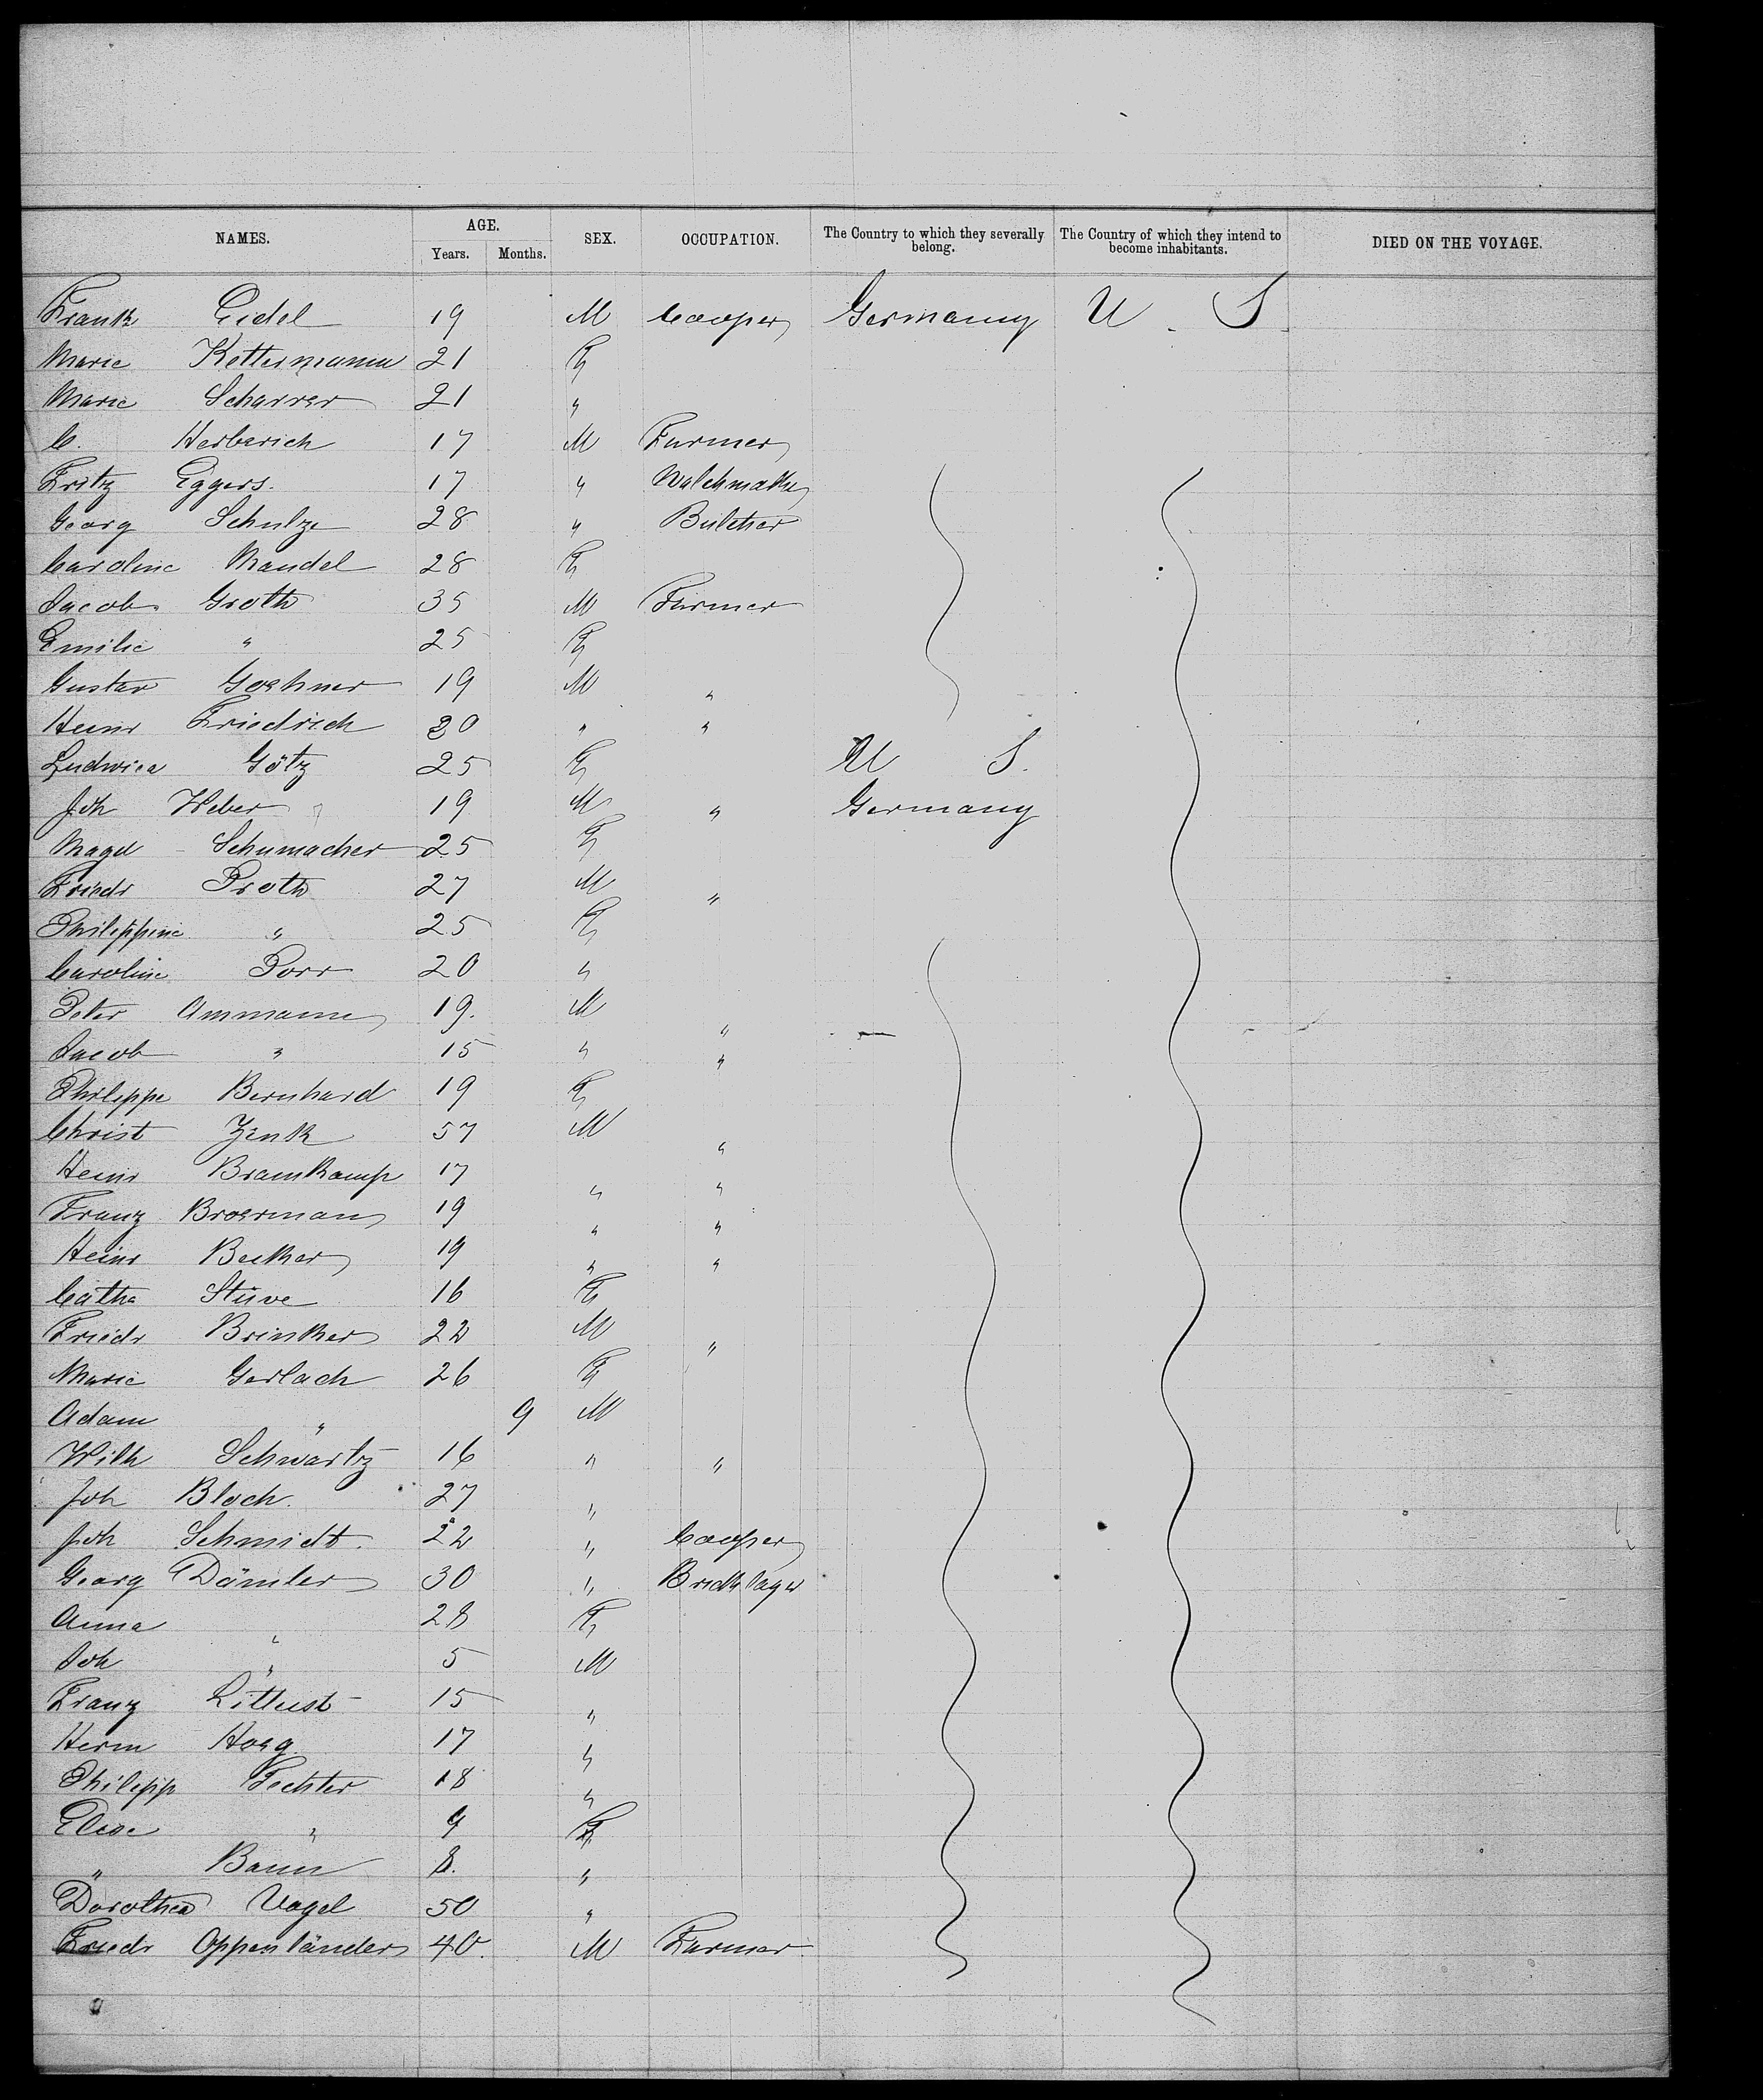 NAMES. AGE. SEX. OCCUPATION. The Country to which they severally belong. The Country of which they intend to become inhabitants. DIED ON THE VOYAGE.
Years. Months.
Frank Eidel 19 M Cooper Germany U. S.
Marie Kettermann 21 F
Marie Scharrer 21 "
C. Herberich 17 M Farmer
Fritz Eggers. 17 " Watchmaker
Georg Schulze 28 " Butcher
Caroline Mandel 28 F
Jacob Groth 35 M Farmer
Emilie " 25 F
Gustav Goehner 19 M "
Heinr Friedrich 20 " "
Ludwica Götz 25 F U S.
Joh Weber 19 M " Germany
Magd Schumacher 25 F
Friedr Proth 27 M "
Philippine " 25 F
Caroline Porr 20 "
Peter Ammann 19. M "
Jacob " 15 " "
Philippe Bernhard 19 F
Christ Zink 57 M "
Heinr Bramkamp 17 " "
Franz Broerman 19 " "
Heinr Becker 19 " "
Catha Stüve 16 F
Friedr Brinker 22 M "
Marie Gerlach 26 F
Adam " 9 M
Wilh Schwartz 16 " "
Joh Bloch. 27 "
Joh Schmidt. 22 " Cooper
Georg Dömler 30 " Bricklayer
Anna " 28 F
Joh " 5 M
Franz 15 "
Herm Hoeg 17 "
Philipp Fechter 18 "
Elise " 9 F
" Baun 8. "
Dorothea Vogel 50 "
Friedr Oppenländer 40. M Farmer